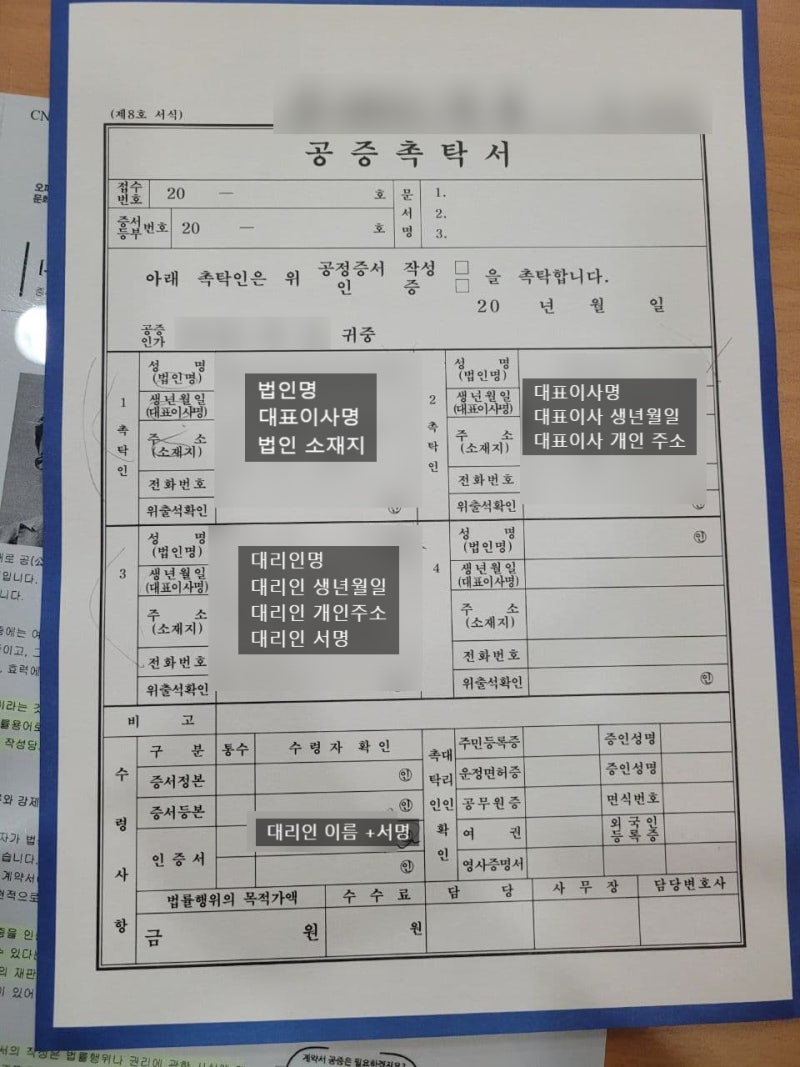 CN
(제8호 서식)
공증촉탁서
접수번호 20 — 호
증서등부번호 20 — 호
문서명
1.
2.
3.
아래 촉탁인은 위 공정증서 작성 □ 을 촉탁합니다.
인 증 □
20 년 월 일
공증인가 귀중
1 촉탁인
성 명
(법인명)
생년월일
(대표이사명)
주 소
(소재지)
전화번호
위출석확인 ㊞
법인명
대표이사명
법인 소재지
2 촉탁인
성 명
(법인명)
생년월일
(대표이사명)
주 소
(소재지)
전화번호
위출석확인 ㊞
대표이사명
대표이사 생년월일
대표이사 개인 주소
3
성 명
(법인명)
생년월일
(대표이사명)
주 소
(소재지)
전화번호
위출석확인
대리인명
대리인 생년월일
대리인 개인주소
대리인 서명
4
성 명
(법인명) ㊞
생년월일
(대표이사명)
주 소
(소재지)
전화번호
위출석확인 ㊞
비 고
수령사항
구 분 통수 수령자 확인
증서정본 ㊞
증서등본 ㊞
인증서
대리인 이름 +서명
㊞
촉탁인 대리인 확인
주민등록증 증인성명
운정면허증 증인성명
공무원증 면식번호
여 권 외국인등록증
영사증명서
법률행위의 목적가액 수수료 담 당 사무장 담당변호사
금 원 원
계약서 공증은 필요하겠지요?